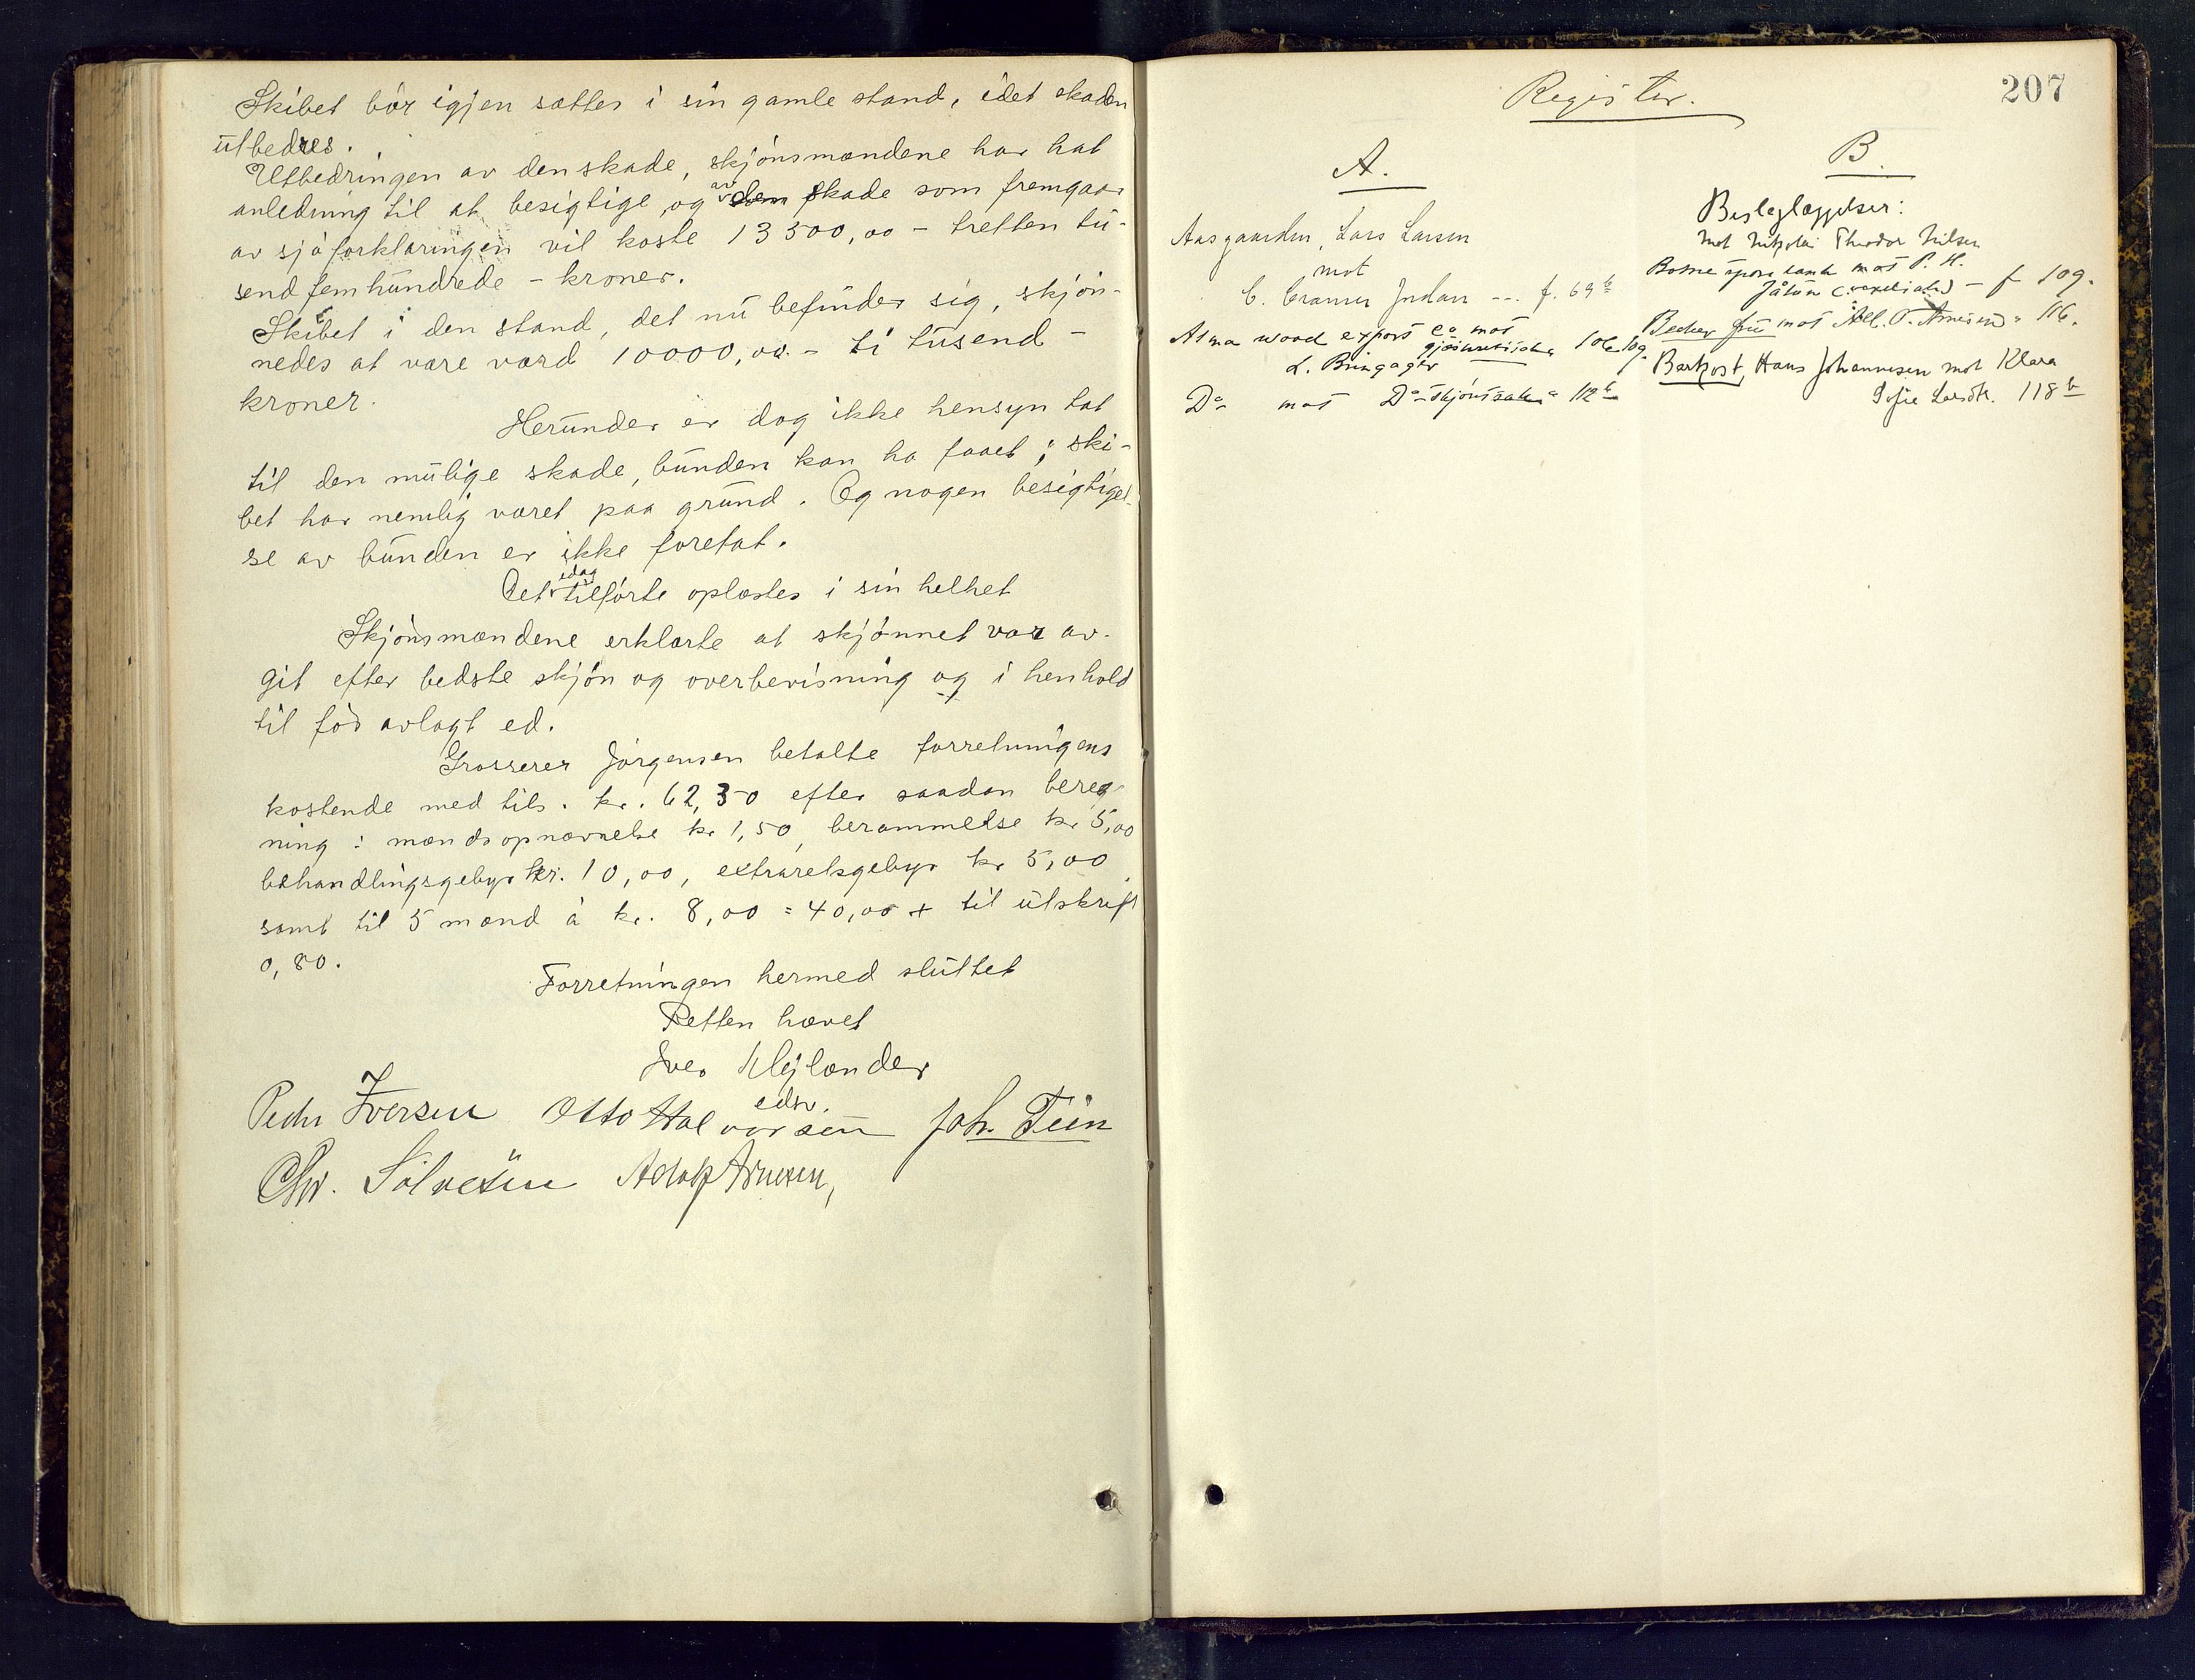 Skibet bör igjen sættes i sin gamle stand, idet skaden
utbedres.
Utbedringen av den skade, skjönsmændene har hat
anledning til at besigtige, og av den skade som fremgaar
av sjöforklaringen vil koste 13500,00 - tretten tu-
send fem hundrede - kroner.
Skibet i den stand, det nu befinder sig, skjön-
nedes at være værd 10000,00. - ti tusend -
kroner.
Herunder er dog ikke hensyn tat
til den mulige skade, bunden kan ha faaet; ski-
bet har nemlig været paa grund. Og nogen besigtigel-
se av bunden er ikke foretat.
Det idag tilförte oplæstes i sin helhet
Skjönsmændene erklærte at skjönnet var av-
git efter bedste skjön og overbevisning og i henhold
til för avlagt ed.
Grosserer Jörgensen betalte forretningens
kostende med tils. kr. 62,30 efter saadan bereg-
ning: mandsopnævnelse kr 1,50, berammelse kr 5,00
behandlingsgebyr kr. 10,00, extraretsgebyr kr 5,00
samt til 5 mænd à kr. 8,00 = 40,00 + til utskrift
0,80.
Forretningen hermed sluttet
Retten hævet
Iver Mejlænder
edsv.
Peder Iversen Otto Halvorsen Joh. Tein
Chr. Sölvesen Aslak Arnesen,
207
Register.
A.
Aasgaarden, Lars Larsen
mot
C. Cramer Jndan --- f. 69 b
Alma wood export co mot
L. Bringager gjæsteretssak " 106, 109
Do mot Do - Skjönssak " 112 b
B.
Beslaglæggelser:
mot Nikolai Theodor Nilsen
Botne spare bank mot P. H.
Jåtun (vexelsak) - f 109.
Becker fru mot Alb. T. Arnesen " 116.
Barkost, Hans Johannesen mot Klara
Sofie Larsdtr. 118 b